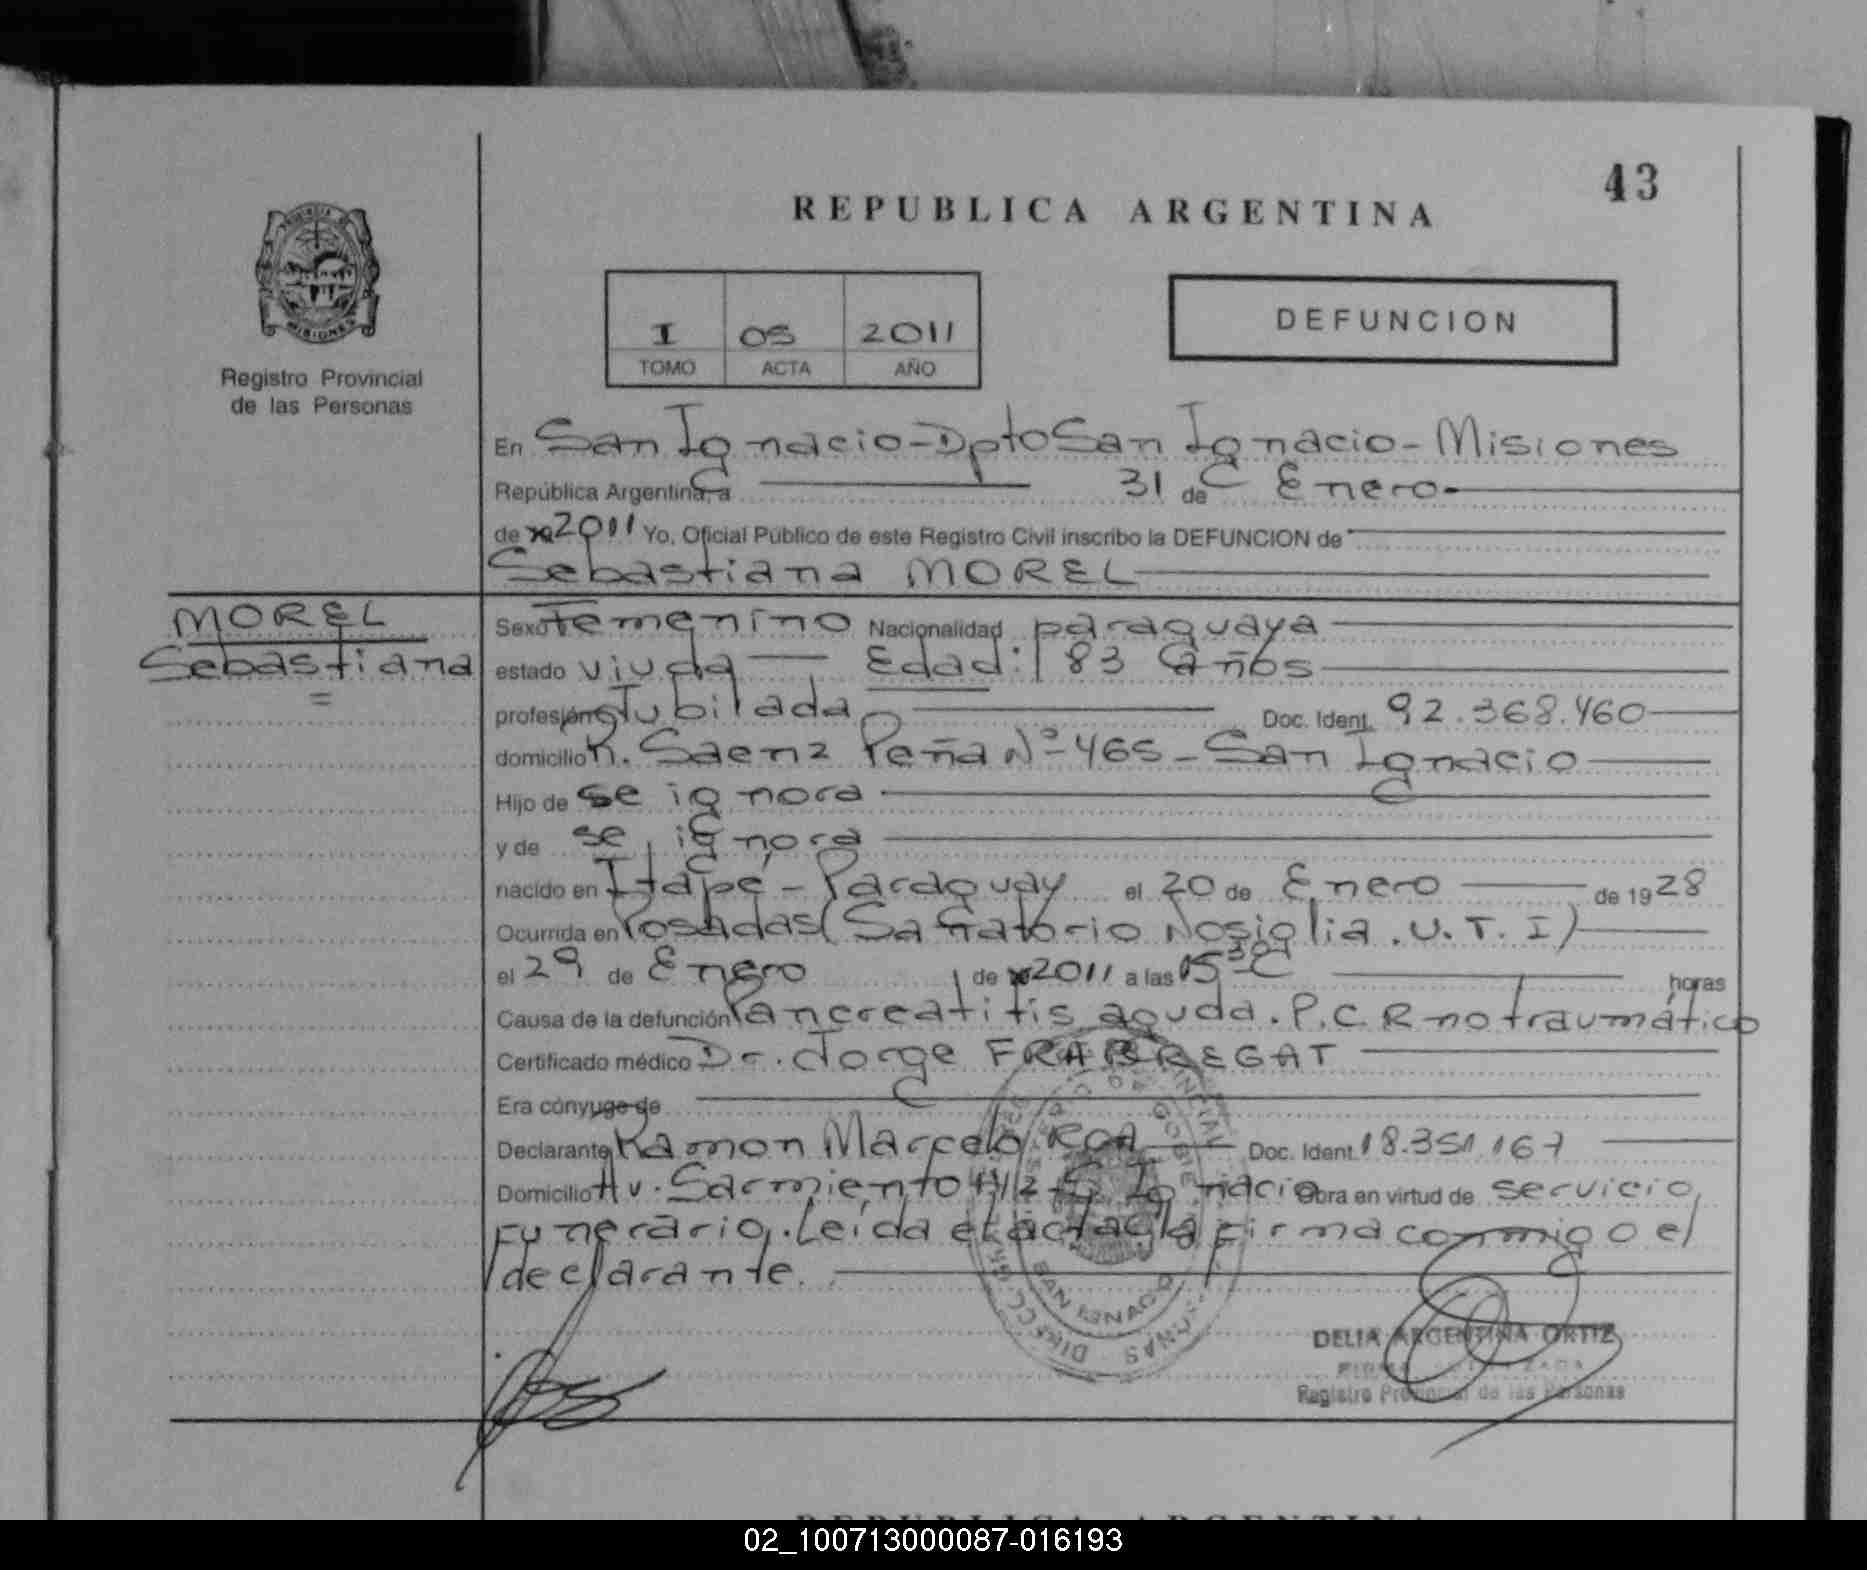 43
REPUBLICA ARGENTINA
MISIONES
Registro Provincial
de las Personas
I 05 2011
TOMO ACTA AÑO
DEFUNCION
En San Ignacio-Dpto San Ignacio-Misiones
República Argentina, a 31 de Enero
de 2011 Yo, Oficial Público de este Registro Civil inscribo la DEFUNCION de
Sebastiana MOREL
MOREL
Sebastiana
Sexo Femenino Nacionalidad paraguaya
estado viuda Edad: 83 años
profesión Jubilada Doc. Ident. 92.368.460
domicilio R. Saenz Peña Nº 465-San Ignacio
Hijo de se ignora
y de se ignora
nacido en Itapé-Paraguay el 20 de Enero de 1928
Ocurrida en Posadas (Sanatorio Nosiglia.U.T.I)
el 29 de Enero de 2011 a las 15 30 horas
Causa de la defunción Pancreatitis aguda. P.C.R no traumático
Certificado médico Dr. Jorge FRABREGAT
Era cónyuge de
Declarante Ramon Marcelo ROA Doc. Ident. 18.351.167
Domicilio Av. Sarmiento Ignacio Obra en virtud de servicio
Funerario. Leída el acta la firma conmigo el
declarante.
SAN IGNACIO
DELIA ARGENTINA ORTIZ
Registro Provincial de las Personas
REPUBLICA ARGENTINA
02_100713000087-016193